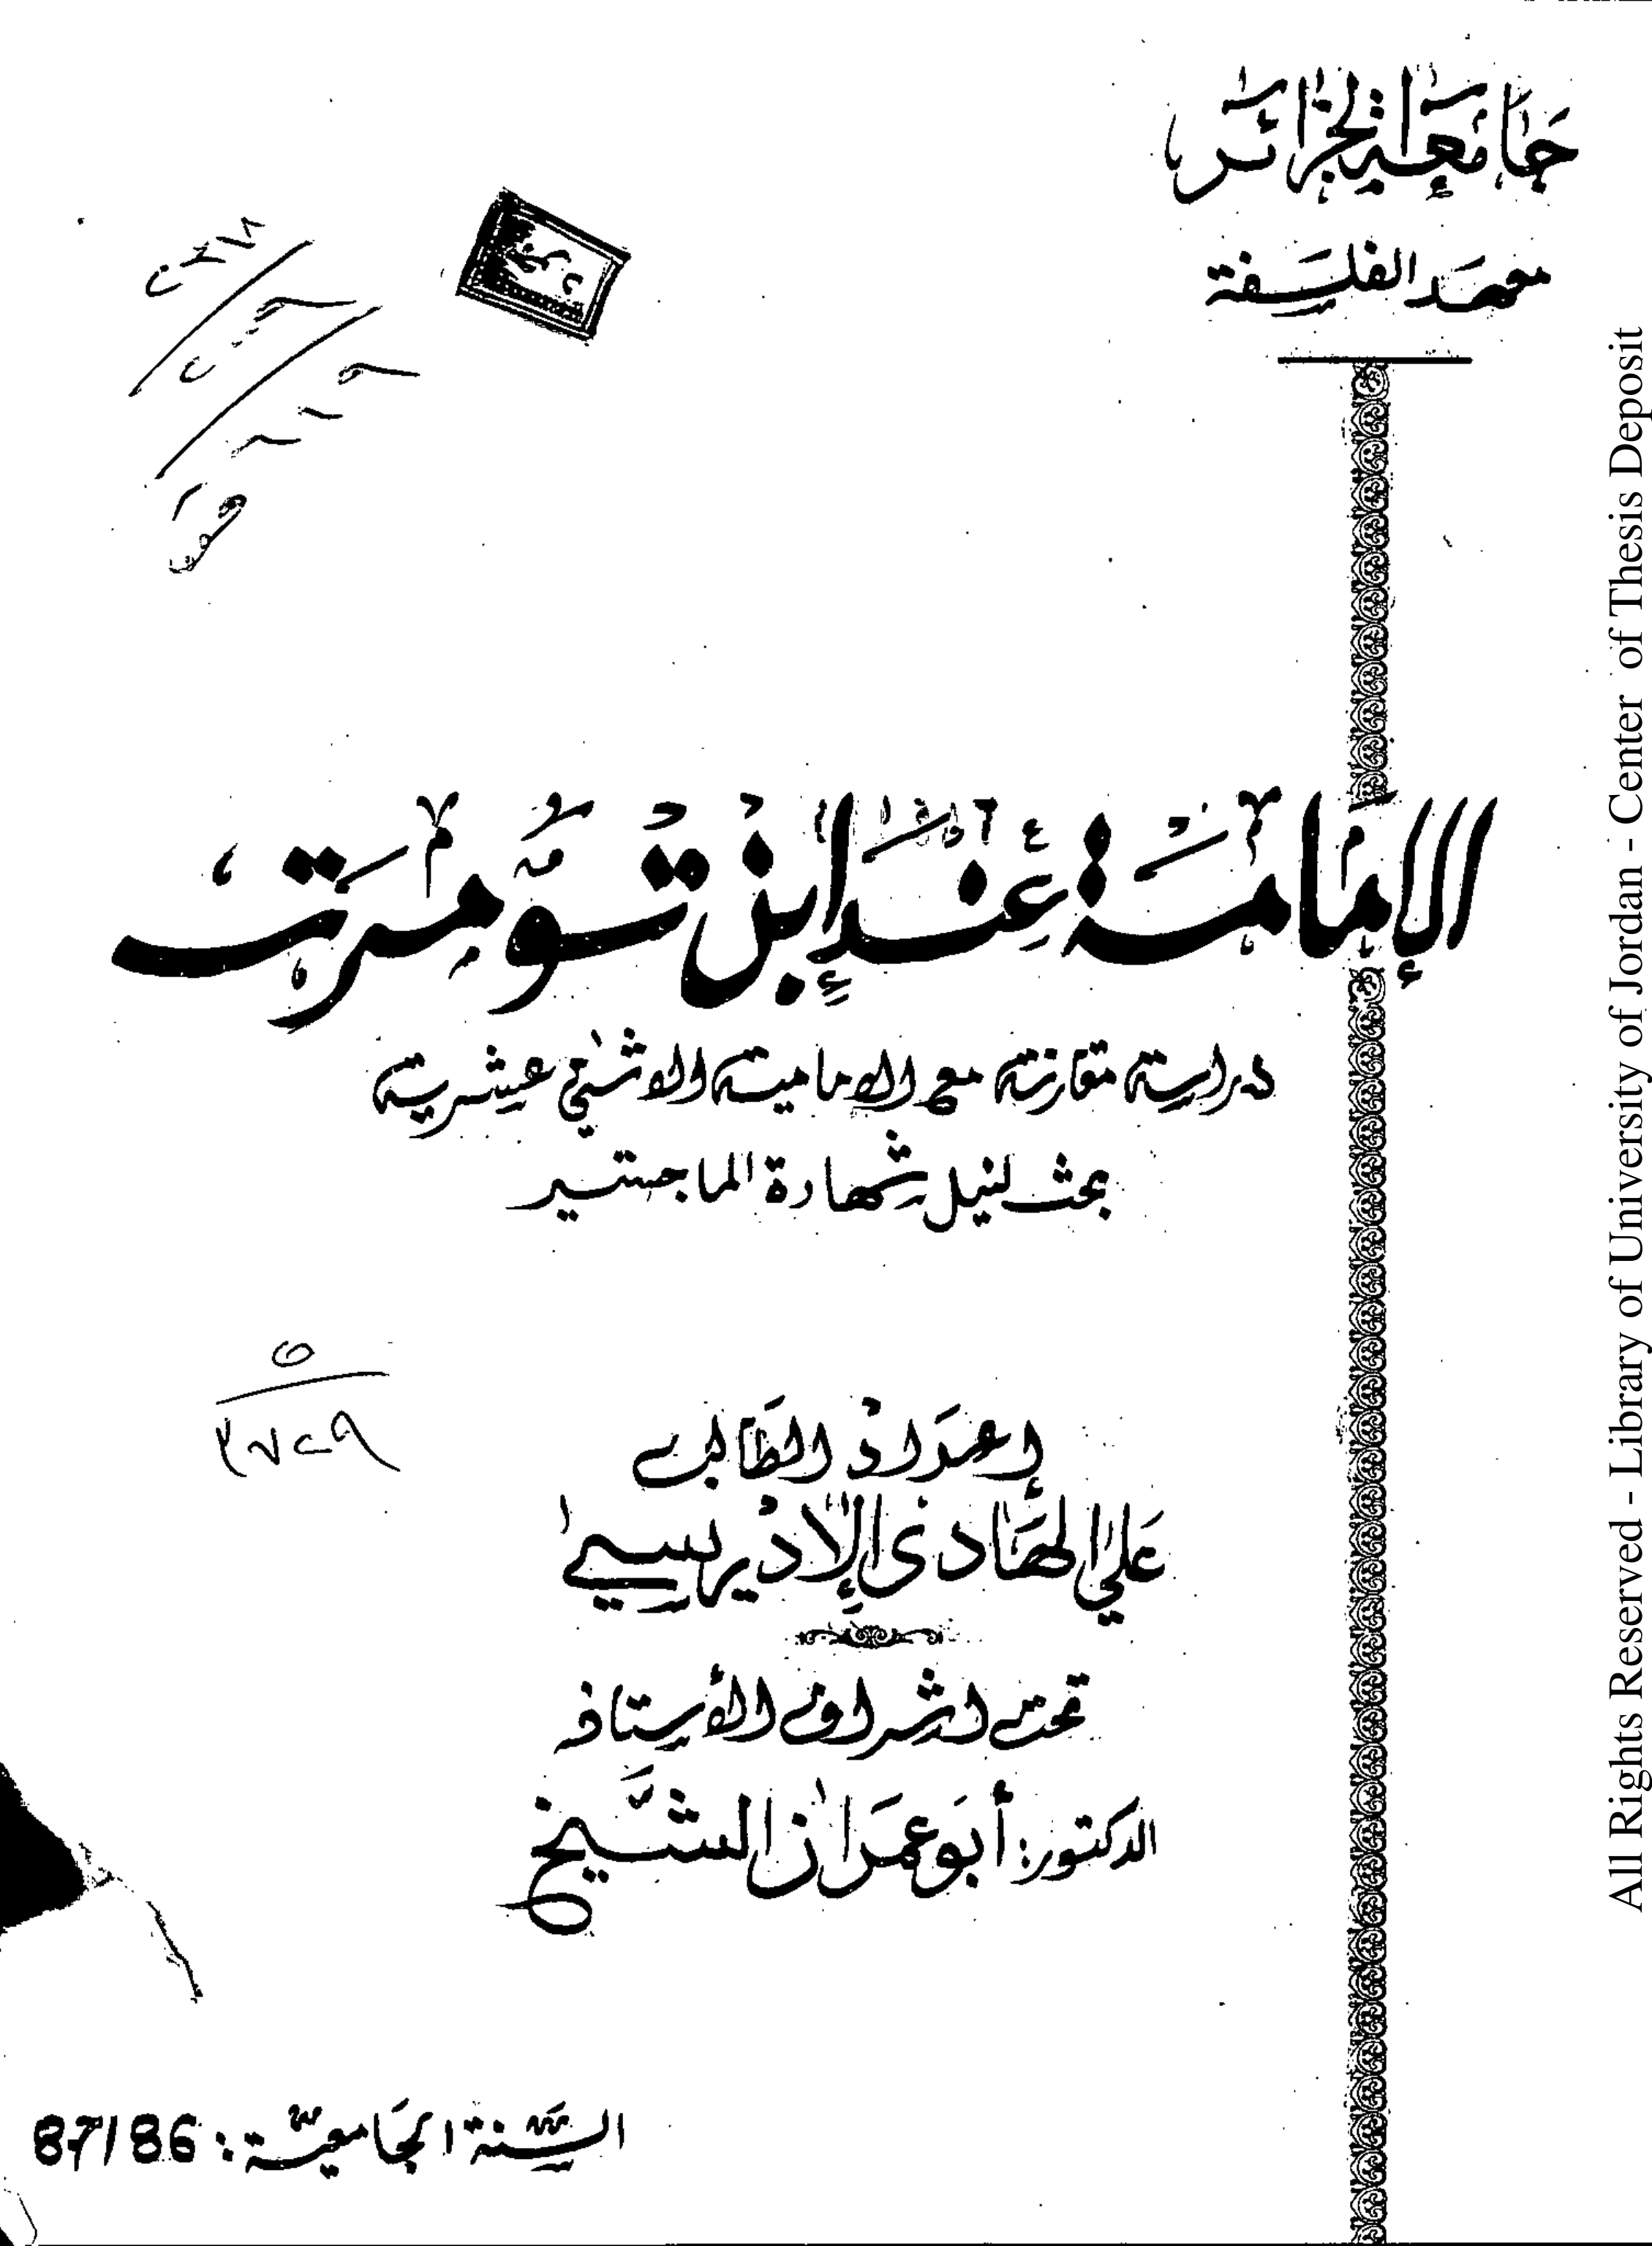 جامعة الجزائر
معهد الفلسفة
الإمامة عند ابن تومرت
دراسة مقارنة مع الامامية الاثني عشرية
بحث لنيل شهادة الماجستير
إعداد الطالب
علي الهادي الإدريسي
تحت اشراف الأستاذ
الدكتور: أبو عمران الشيخ
السنة الجامعية: 87/86
All Rights Reserved - Library of University of Jordan - Center of Thesis Deposit